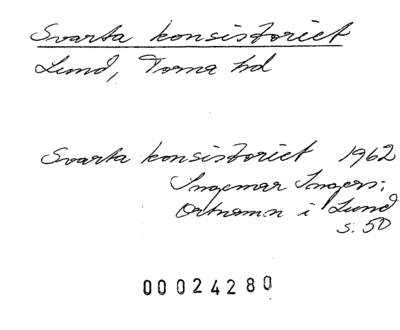 Svarta konsistoriet
Lund, Torna hd
Svarta konsistoriet 1962
Ingemar Ingers:
Ortnamn i Lund
s. 50
00024280